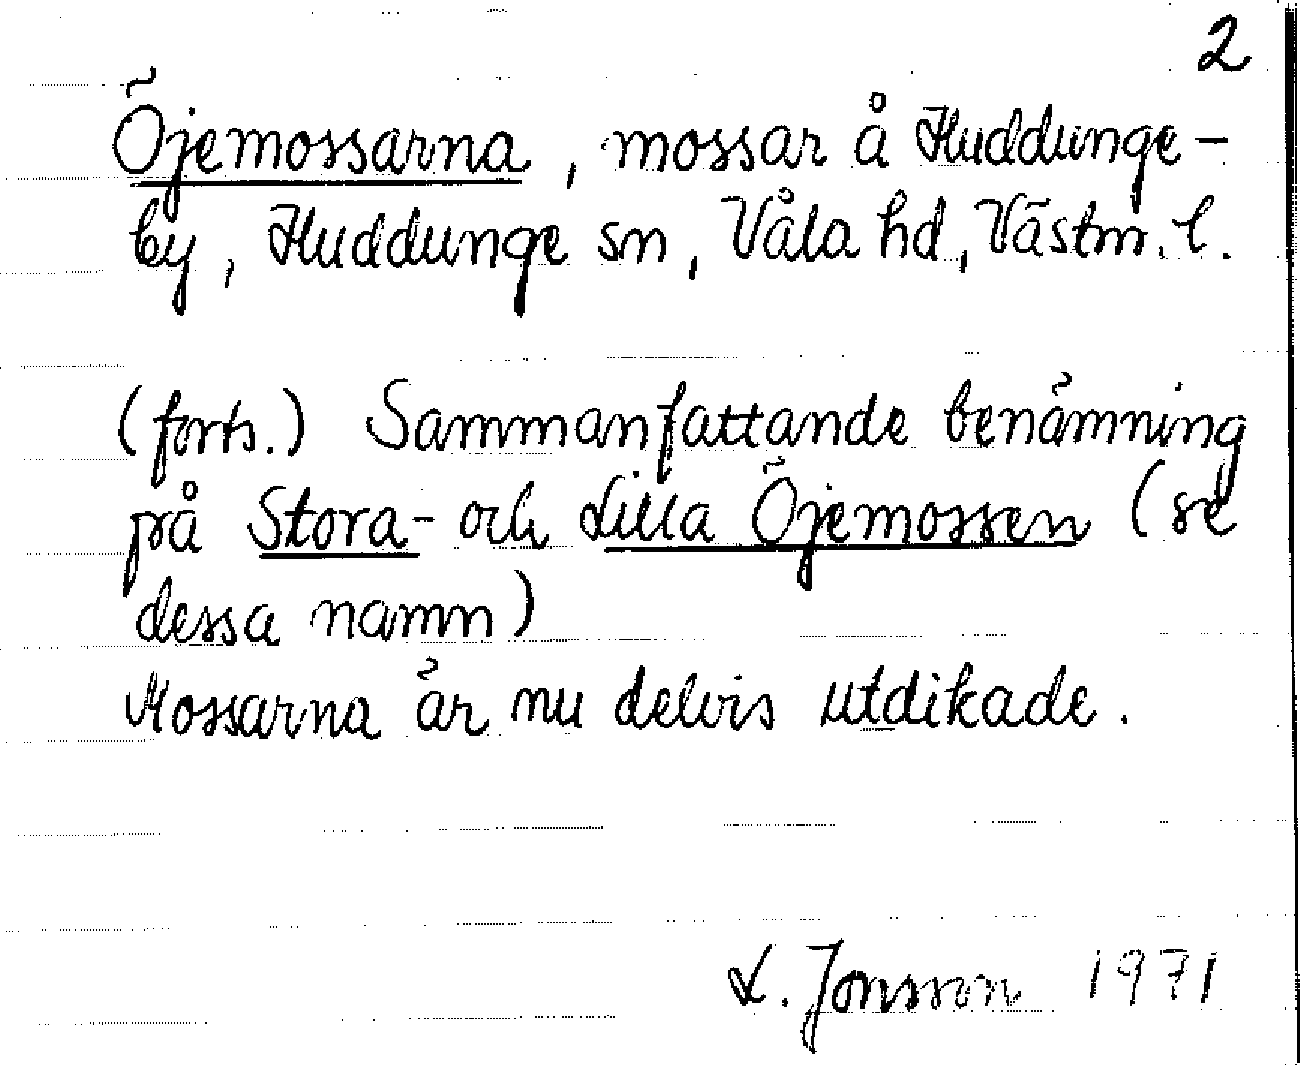 2
Öjemossarna, mossar å Huddunge-
by, Huddunge sn, Våla hd, Västm. l.
(forts.) Sammanfattande benämning
på Stora- och Lilla Öjemossen (se
dessa namn)
Mossarna är nu delvis utdikade.
L. Jonsson 1971